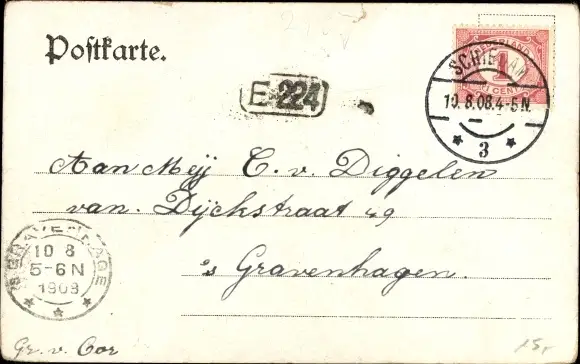 Postkarte.
NEDERLAND
1
CENT
SCHIEDAM
10.8.08.4-5N.
3
E 224
Aan Mej C. v. Diggelen
van. Dijckstraat 49
's Gravenhagen.
'S GRAVENHAGE
10 8
5-6N
1908
Gr. v. Cor